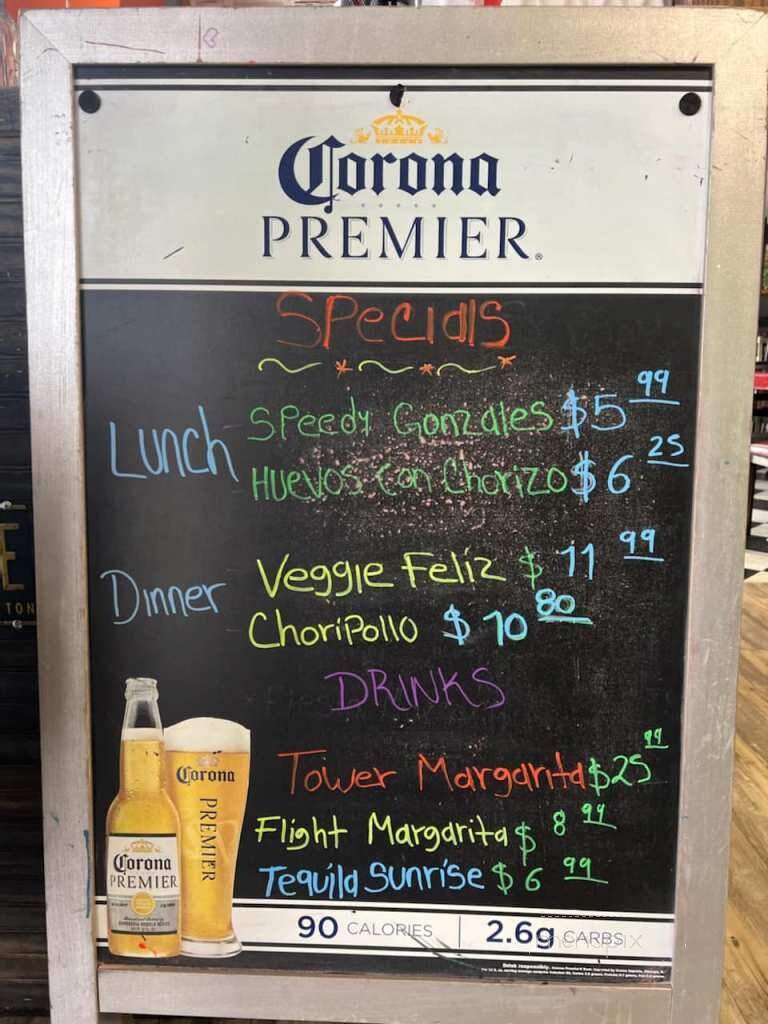 Corona
PREMIER.
Specials
Lunch
Speedy Gonzales $5 99
Huevos Con Chorizo $6 25
Dinner
Veggie Feliz $ 11 99
Choripollo $ 10 80
DRINKS
Tower Margarita $25 99
Flight Margarita $ 8 99
Tequila Sunrise $ 6 99
Corona
PREMIER
Corona
PREMIER
90 CALORIES | 2.6g CARBS
TON